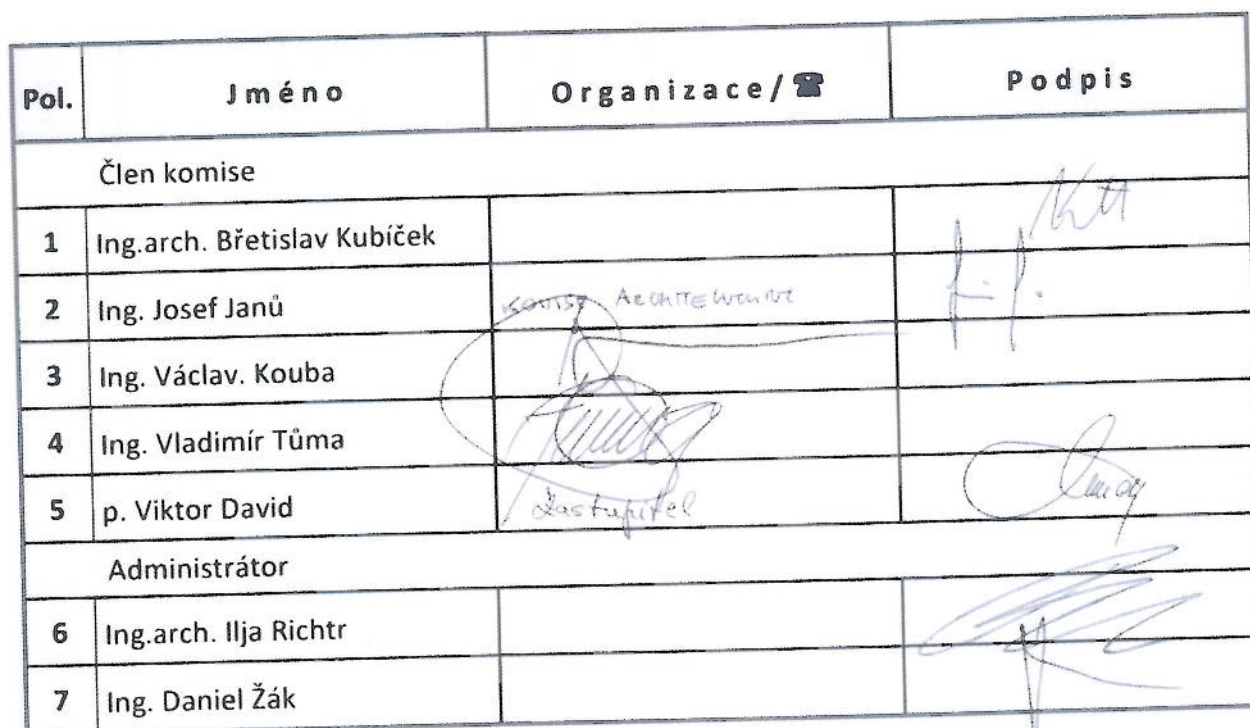 Pol. Jméno Organizace/☎ Podpis
Člen komise
1 Ing.arch. Břetislav Kubíček
2 Ing. Josef Janů KOMISE ARCHITEKTURY
3 Ing. Václav. Kouba
4 Ing. Vladimír Tůma
5 p. Viktor David Zastupitel
Administrátor
6 Ing.arch. Ilja Richtr
7 Ing. Daniel Žák